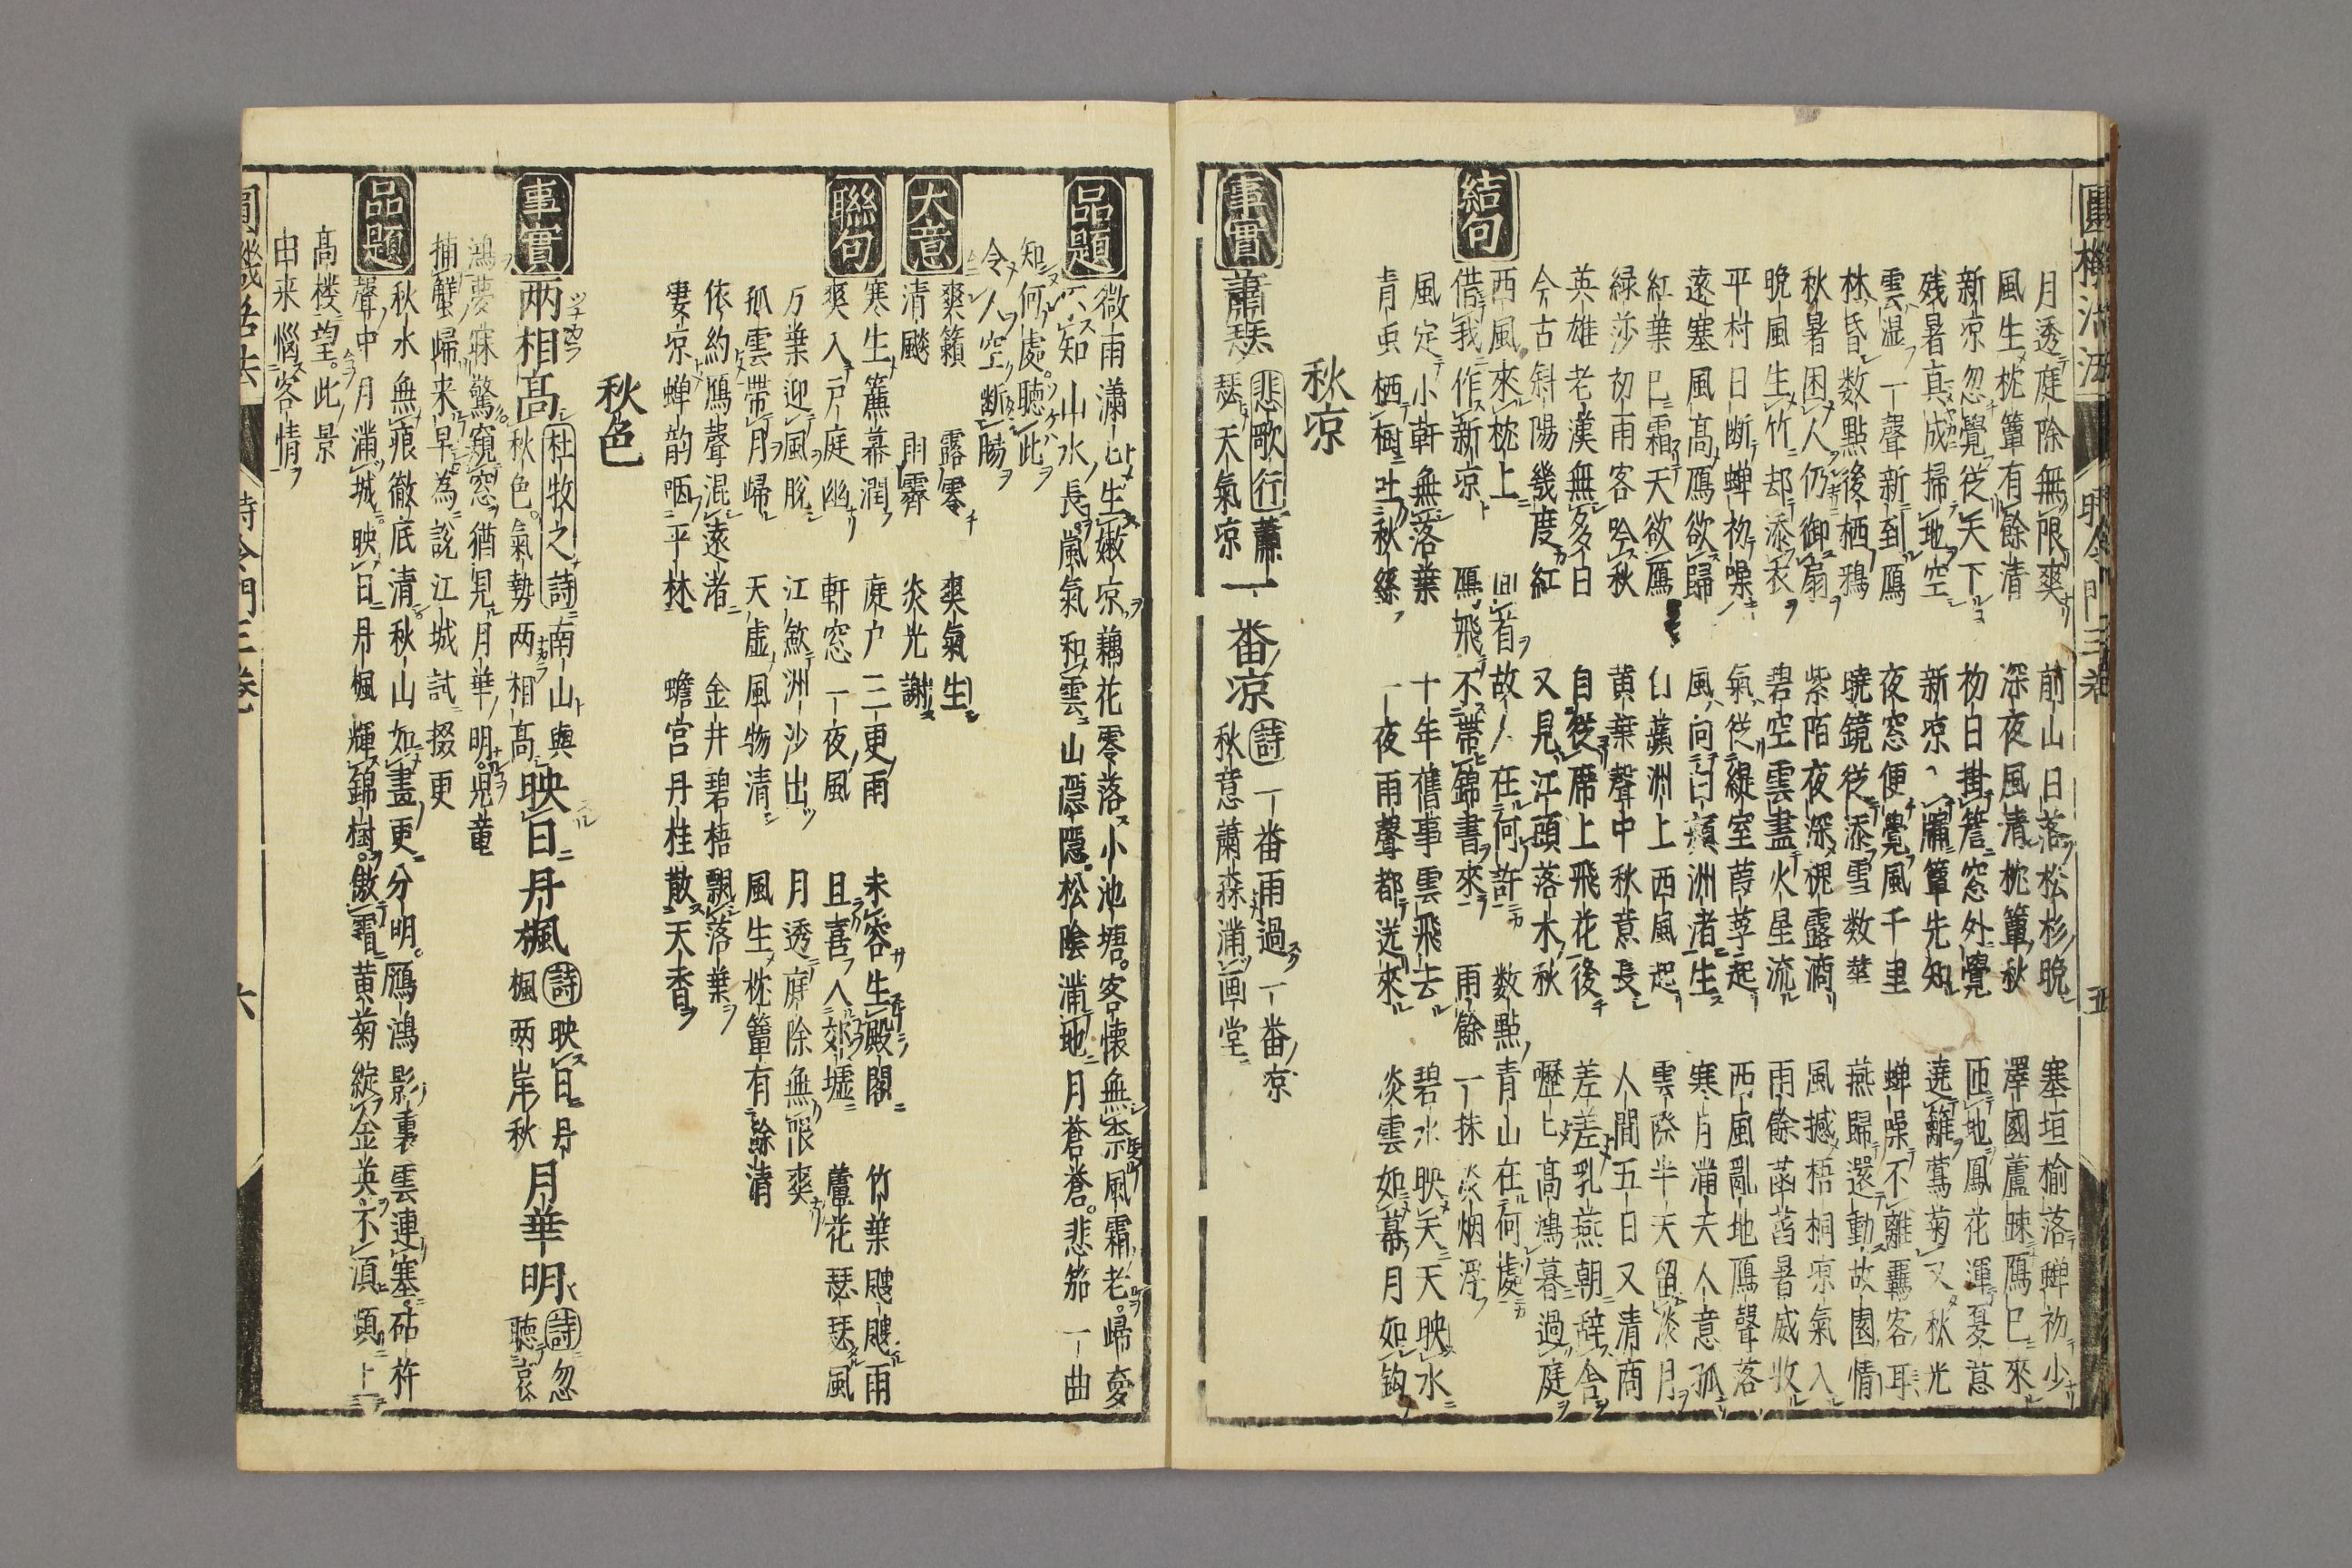 圓機活法 時令門三卷 五
月透庭除無限爽 前山日落松杉晚 塞垣榆落蟬初少
風生枕簟有餘清 深夜風清枕簟秋 澤國蘆疎鴈已來
新凉忽覺從天下 初日掛簷窓外覺 匝地鳳花渾憂意
残暑真成掃地空 新凉 簟先知 遶籬鶯菊又秋光
雲湿一聲新到鴈 夜窓便覺風千里 蝉噪不離羈客耳
林昏数點後栖鴉 曉鏡從添雪数莖 燕歸還動故園情
秋暑困人仍御扇 紫陌夜深槐露滴 風撼梧桐凉氣入
晚風生竹却添衣 碧空雲盡火星流 雨餘菡萏暑威收
平村日断蝉初噪 氣從緹室葭莩起 西風亂地鴈聲落
遠塞風高鴈欲歸 風向白蘋洲渚生 寒月滿天人意孤
紅葉已霜天欲鴈 白蘋洲上西風起 雲際半天留淡月
緑莎初雨客吟秋 黄葉聲中秋意長 人間五日又清商
英雄老漢無多白 自從席上飛花後 差差乳燕朝辞舎
今古斜陽幾度紅 又見江頭落木秋 嚦嚦高鴻暮過庭
結句
西風來枕上 回首故人在何許 数點青山在何處
借我作新凉 鴈飛不帯錦書來 雨餘一抹淡烟浮
風定小軒無落葉 十年舊事雲飛去 碧水映天天映水
青虫栖樹吐秋絲 一夜雨聲都送來 淡雲如幕月如鈎
秋凉
事實 蕭瑟 悲歌行 蕭瑟天氣凉 一番凉 詩 一番雨過一番凉 秋意蕭森滿画堂
品題
微雨瀟瀟生嫩凉 藕花零落小池塘 客懐無柰風霜老 歸夢
不知山水長 嵐氣和雲山隱隱 松陰滿地月蒼蒼 悲笳一曲
知何處 聽此
令人空断腸
大意
爽籟 露零 爽氣生
清飈 雨霽 炎光謝
聯句
寒生簾幕潤 庭户三更雨 未容生殿閣 竹葉颼颼雨
爽入戸庭幽 軒窓一夜風 且喜入郊墟 蘆花瑟瑟風
万葉迎風脱 江歛洲沙出 月透庭除無限爽
孤雲帯月歸 天虚風物清 風生枕簟有餘清
依約鴈聲混遠渚 金井碧梧飄落葉
凄凉蝉韵咽平林 蟾宮丹桂散天香
秋色
事實 兩相高 杜牧之詩 南山與秋色 氣勢两相高 映日丹楓 詩 映日丹楓两岸秋 月華明 詩 忽聴哀
鴻夢寐驚 窺窓猶見月華明 児童
捕蟹歸来早 為說江城試掇更
品題
秋水無痕徹底清 秋山如畫更分明 鴈鴻影裏雲連塞 砧杵
聲中月滿城 映日丹楓輝錦樹 傲霜黄菊綻金英 不湏頻上
高楼望 此景
由来惱客情
圓機活法 時令門三卷 六